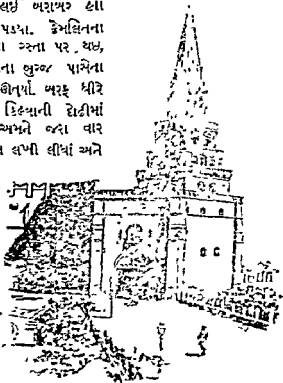 લઈ બરાબર હા
પડ્યા. ક્રેમલિનના
રસ્તા પર થઇ,
ના બુરજ પાસેના
ઊતર્યા. બરફ ધીરે
કિલ્લાની દોઢીમાં
અમને જરા વાર
લખી લીધાં અને